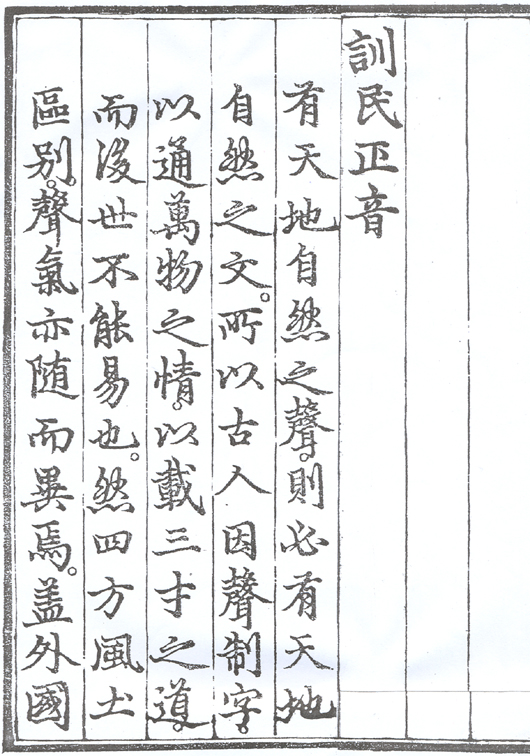 訓民正音
有天地自然之聲。則必有天地
自然之文。所以古人因聲制字。
以通萬物之情。以載三才之道。
而後世不能易也。然四方風土
區別。聲氣亦隨而異焉。蓋外國